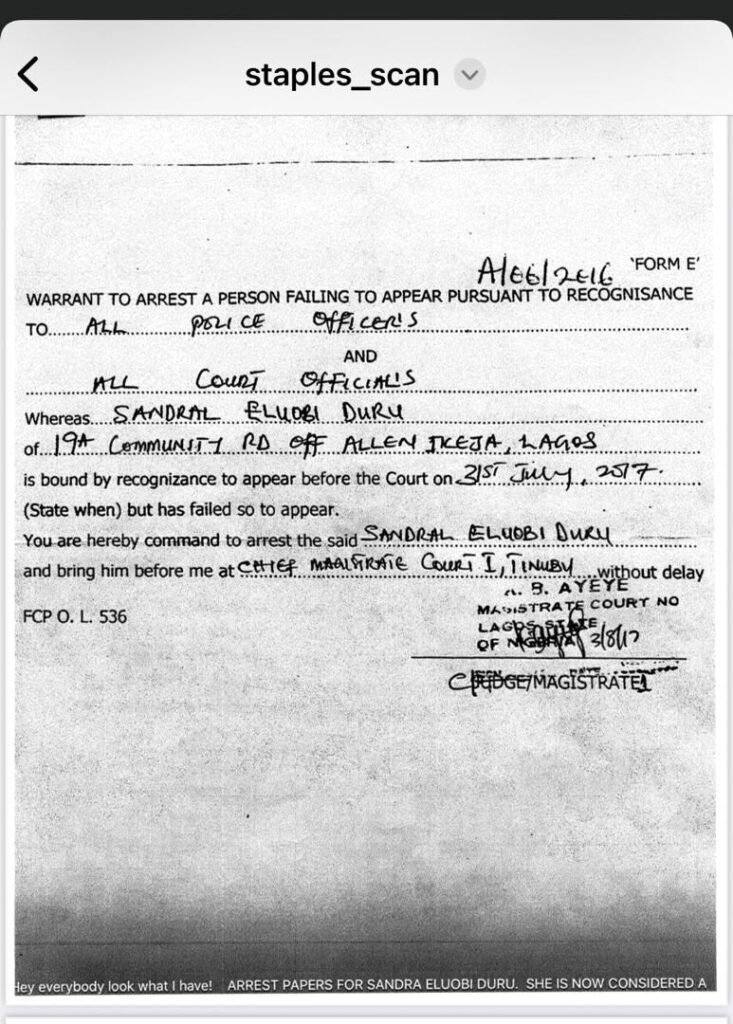 staples_scan
A/06/2016 'FORM E'
WARRANT TO ARREST A PERSON FAILING TO APPEAR PURSUANT TO RECOGNISANCE
TO......ALL POLICE OFFICER'S
AND
ALL COURT OFFICIAL'S
Whereas....SANDRAL ELUOBI DURU
of..19A COMMUNITY RD OFF ALLEN IKEJA, LAGOS
is bound by recognizance to appear before the Court on 31ST July, 2017.
(State when) but has failed so to appear.
You are hereby command to arrest the said SANDRAL ELUOBI DURU
and bring him before me at CHIEF MAGISTRATE COURT I, TINUBU without delay
B. AYEYE
MAGISTRATE COURT NO
FCP O. L. 536
LAGOS STATE
OF NIGERIA 3/8/17
JUDGE/MAGISTRATE 1
Hey everybody look what I have! ARREST PAPERS FOR SANDRA ELUOBI DURU. SHE IS NOW CONSIDERED A